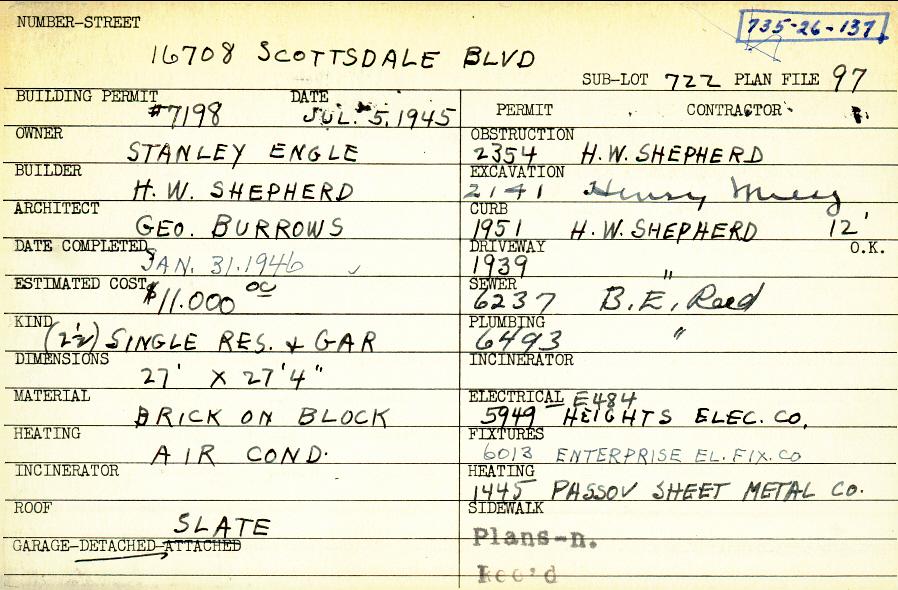 NUMBER-STREET
735-26-137
16708 SCOTTSDALE BLVD
SUB-LOT 722 PLAN FILE 97
BUILDING PERMIT #7198 DATE JUL. 5, 1945
OWNER STANLEY ENGLE
BUILDER H. W. SHEPHERD
ARCHITECT GEO. BURROWS
DATE COMPLETED JAN. 31. 1946
ESTIMATED COST $11.000 00
KIND (2½) SINGLE RES. & GAR
DIMENSIONS 27' X 27'4"
MATERIAL BRICK ON BLOCK
HEATING AIR COND.
INCINERATOR
ROOF SLATE
GARAGE-DETACHED-ATTACHED
PERMIT CONTRACTOR
OBSTRUCTION
2354 H.W. SHEPHERD
EXCAVATION
2141 Henry
CURB
1951 H.W. SHEPHERD 12'
DRIVEWAY O.K.
1939 "
SEWER
6237 B.E. Reed
PLUMBING
6493 "
INCINERATOR
ELECTRICAL E484
5949 HEIGHTS ELEC. CO.
FIXTURES
6013 ENTERPRISE EL. FIX. CO
HEATING
1445 PASSOV SHEET METAL CO.
SIDEWALK
Plans-n.
Rec'd